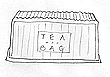 TEA
BAG